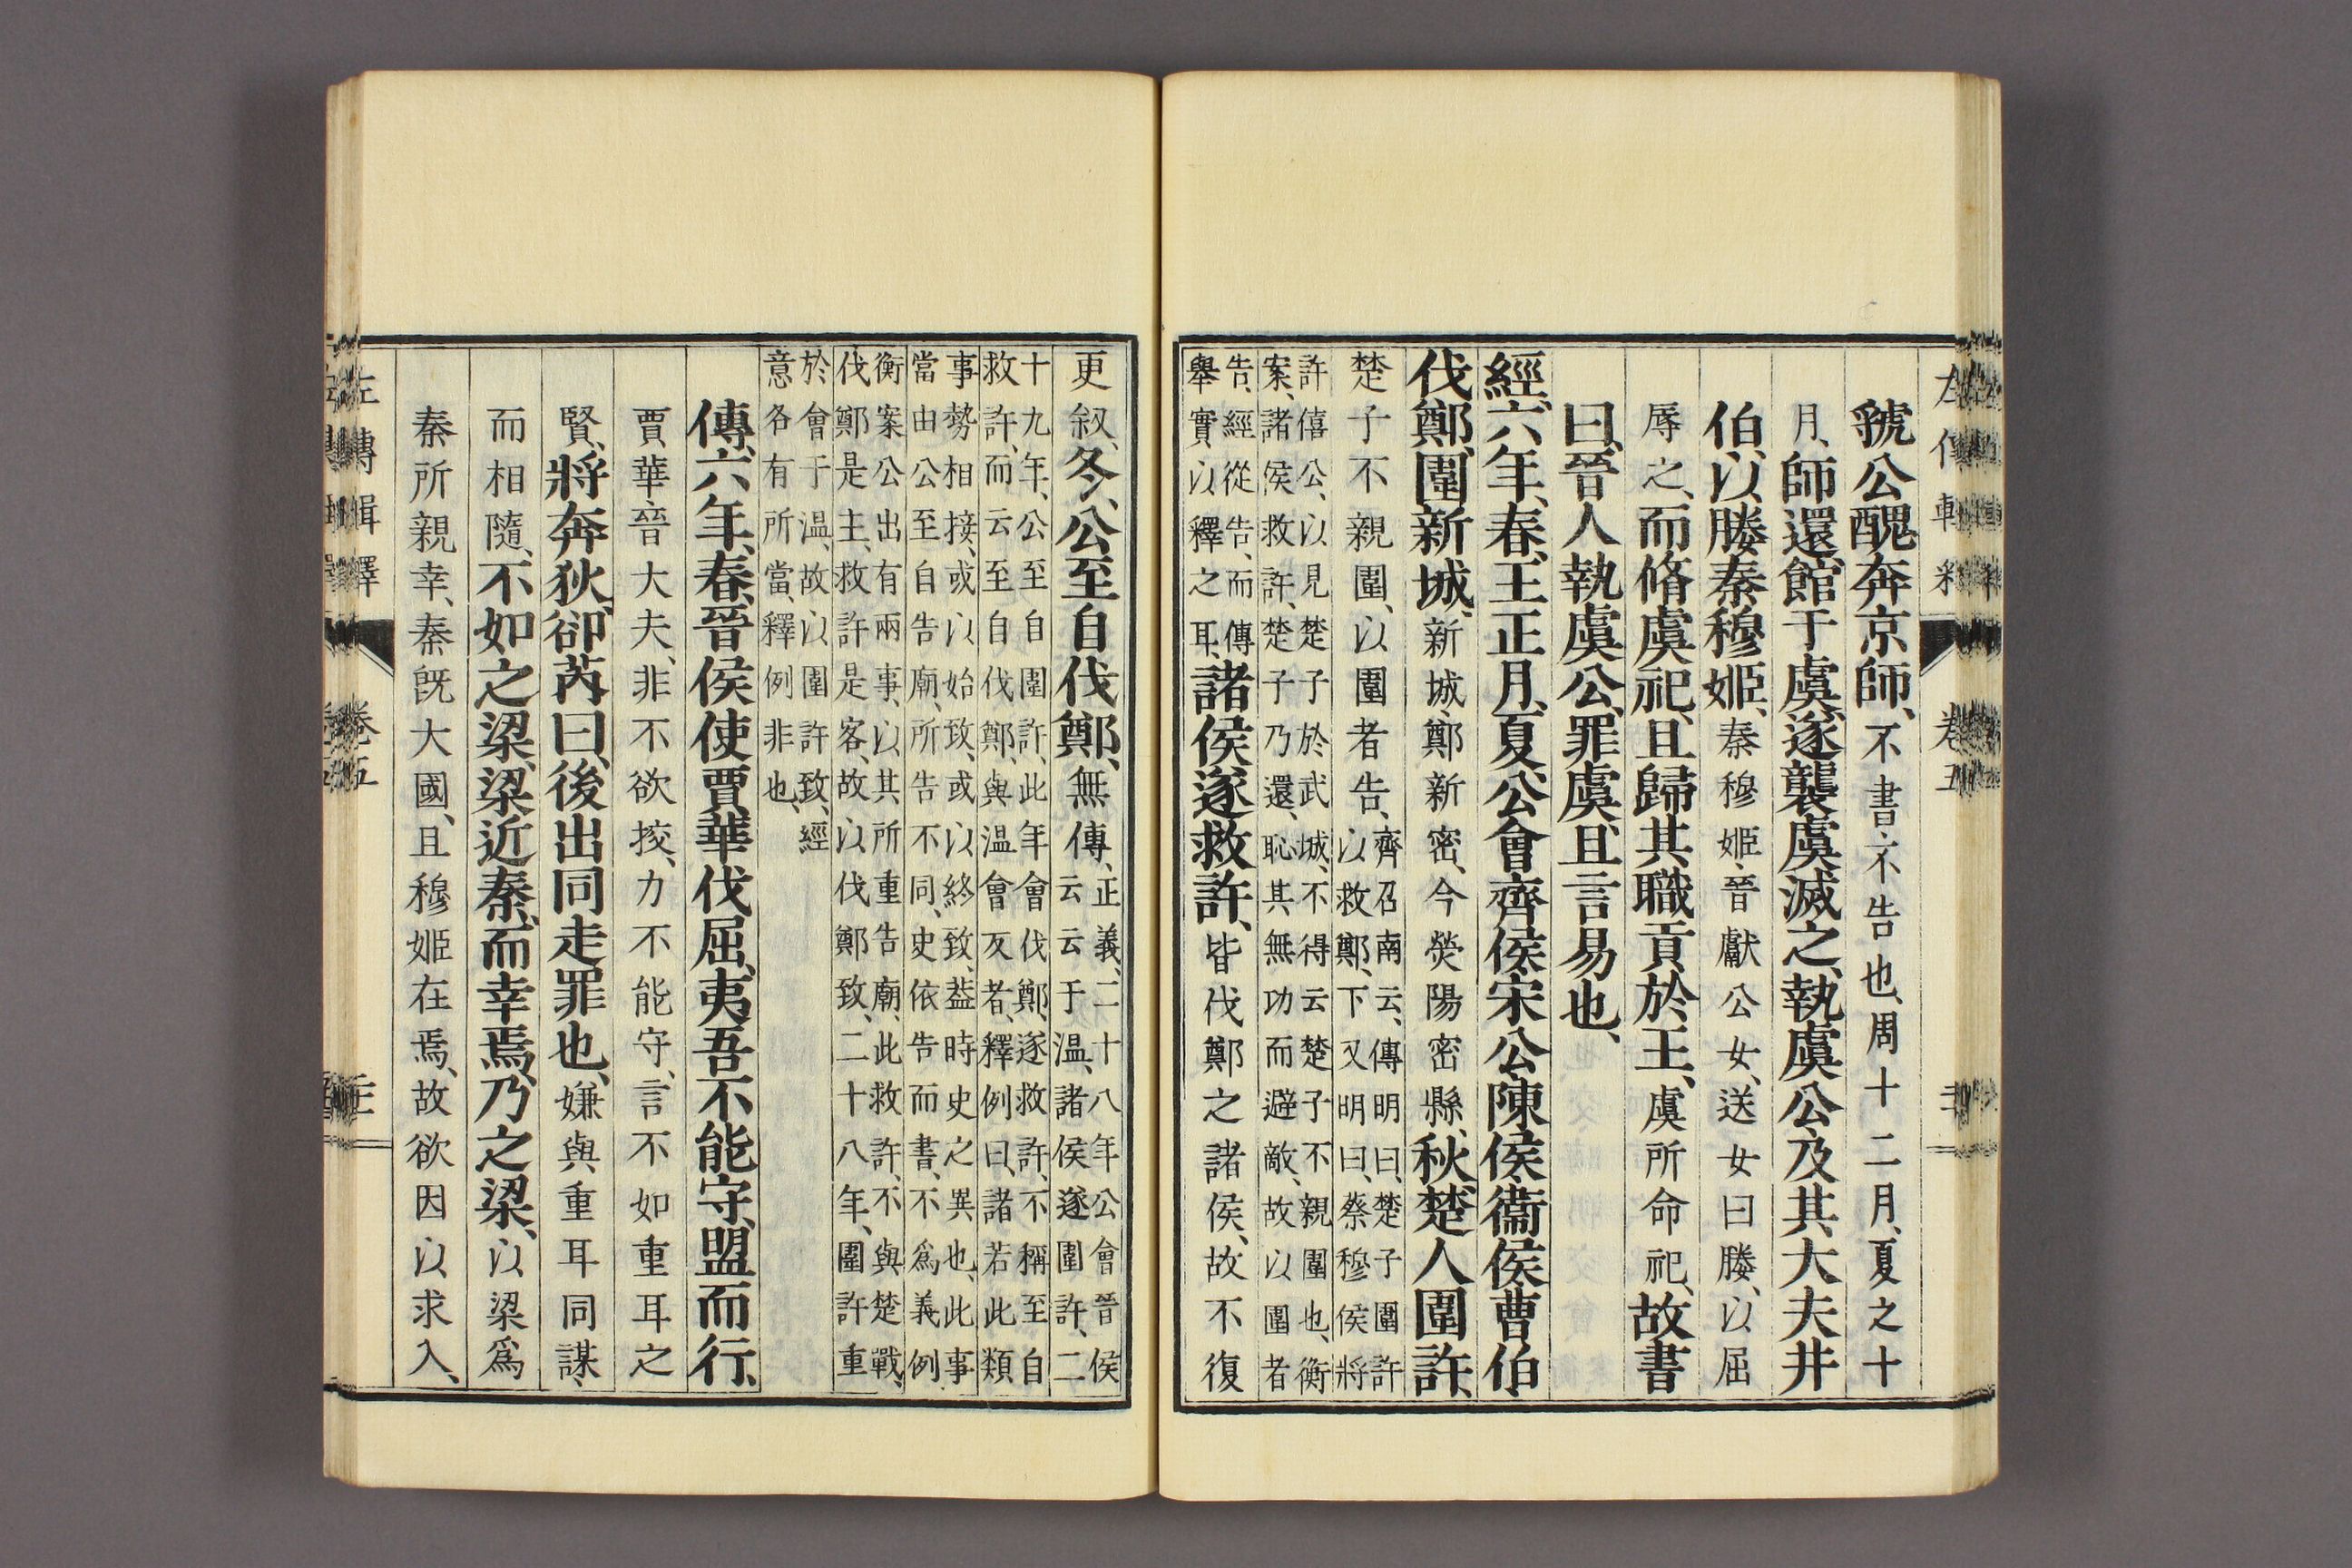 左傳輯釋 卷五
虢公醜奔京師、不書、不告也、周十二月、夏之十
月、師還、館于虞、遂襲虞滅之、執虞公、及其大夫井
伯、以媵秦穆姬、秦穆姬、晉獻公女、送女曰媵、以屈
辱之、而脩虞祀、且歸其職貢於王、虞所命祀、故書
曰、晉人執虞公、罪虞、且言易也、
經、六年、春、王正月、夏、公會齊侯宋公陳侯衞侯曹伯
伐鄭、圍新城、新城、鄭新密、今熒陽密縣、秋、楚人圍許、
楚子不親圍、以圍者告、
齊召南云、傳明曰、楚子圍許
以救鄭、下又明曰、蔡穆侯將
許僖公、以見楚子於武城、不得云楚子不親圍也、衡
案、諸侯救許、楚子乃還、恥其無功而避敵、故以圍者
告、經從告、而傳
舉實、以釋之耳、
諸侯遂救許、皆伐鄭之諸侯、故不復
更叙、冬、公至自伐鄭、無傳、
正義、二十八年公會晉侯
云云于温、諸侯遂圍許、二
十九年、公至自圍許、此年會伐鄭、遂救許、不稱至自
救許、而云至自伐鄭、與温會反者、釋例曰、諸若此類
事勢相接、或以始致、或以終致、蓋時史之異也、此事
當由公至自告廟、所告不同、史依告而書、不爲義例
衡案公出有兩事、以其所重告廟、此救許、不與楚戰、
伐鄭是主、救許是客、故以伐鄭致、二十八年、圍許重
於會于温、故以圍許致、經
意各有所當、釋例非也、
傳、六年、春、晉侯使賈華伐屈、夷吾不能守、盟而行、
賈華、晉大夫、非不欲挍、力不能守、言不如重耳之
賢、將奔狄、郤芮曰、後出同走罪也、嫌與重耳同謀、
而相隨、不如之梁、梁近秦、而幸焉、乃之梁、以梁爲
秦所親幸、秦既大國、且穆姬在焉、故欲因以求入、
左傳輯釋 卷五